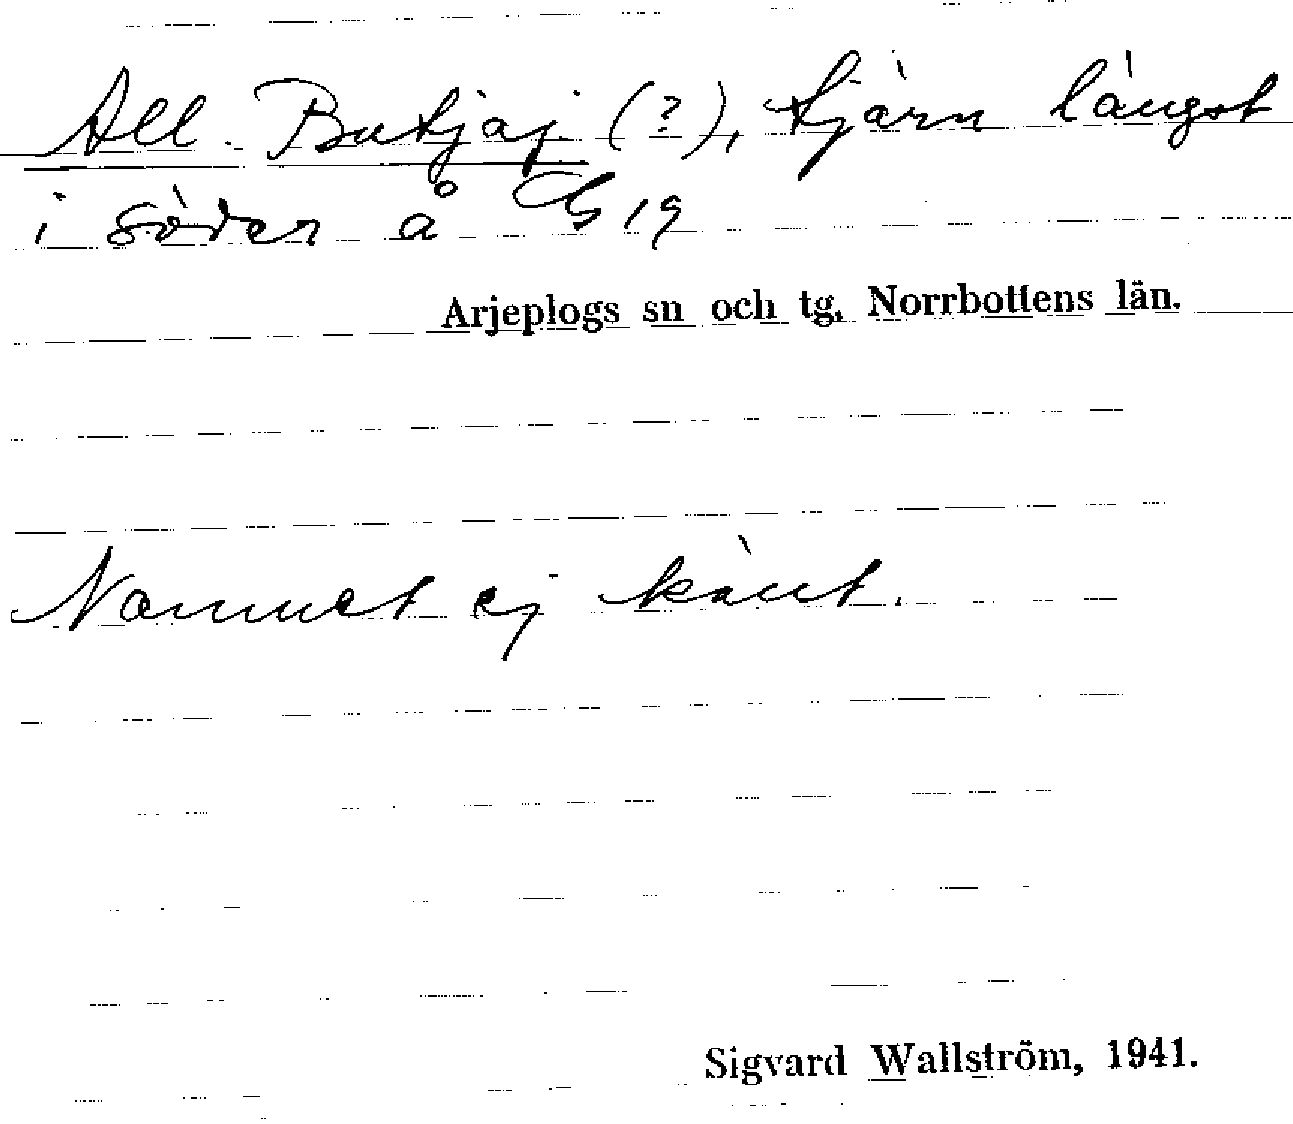 All. Butjaj (?), tjärn längst
i söder å G 19
Arjeplogs sn och tg. Norrbottens län.
Namnet ej känt.
Sigvard Wallström, 1941.